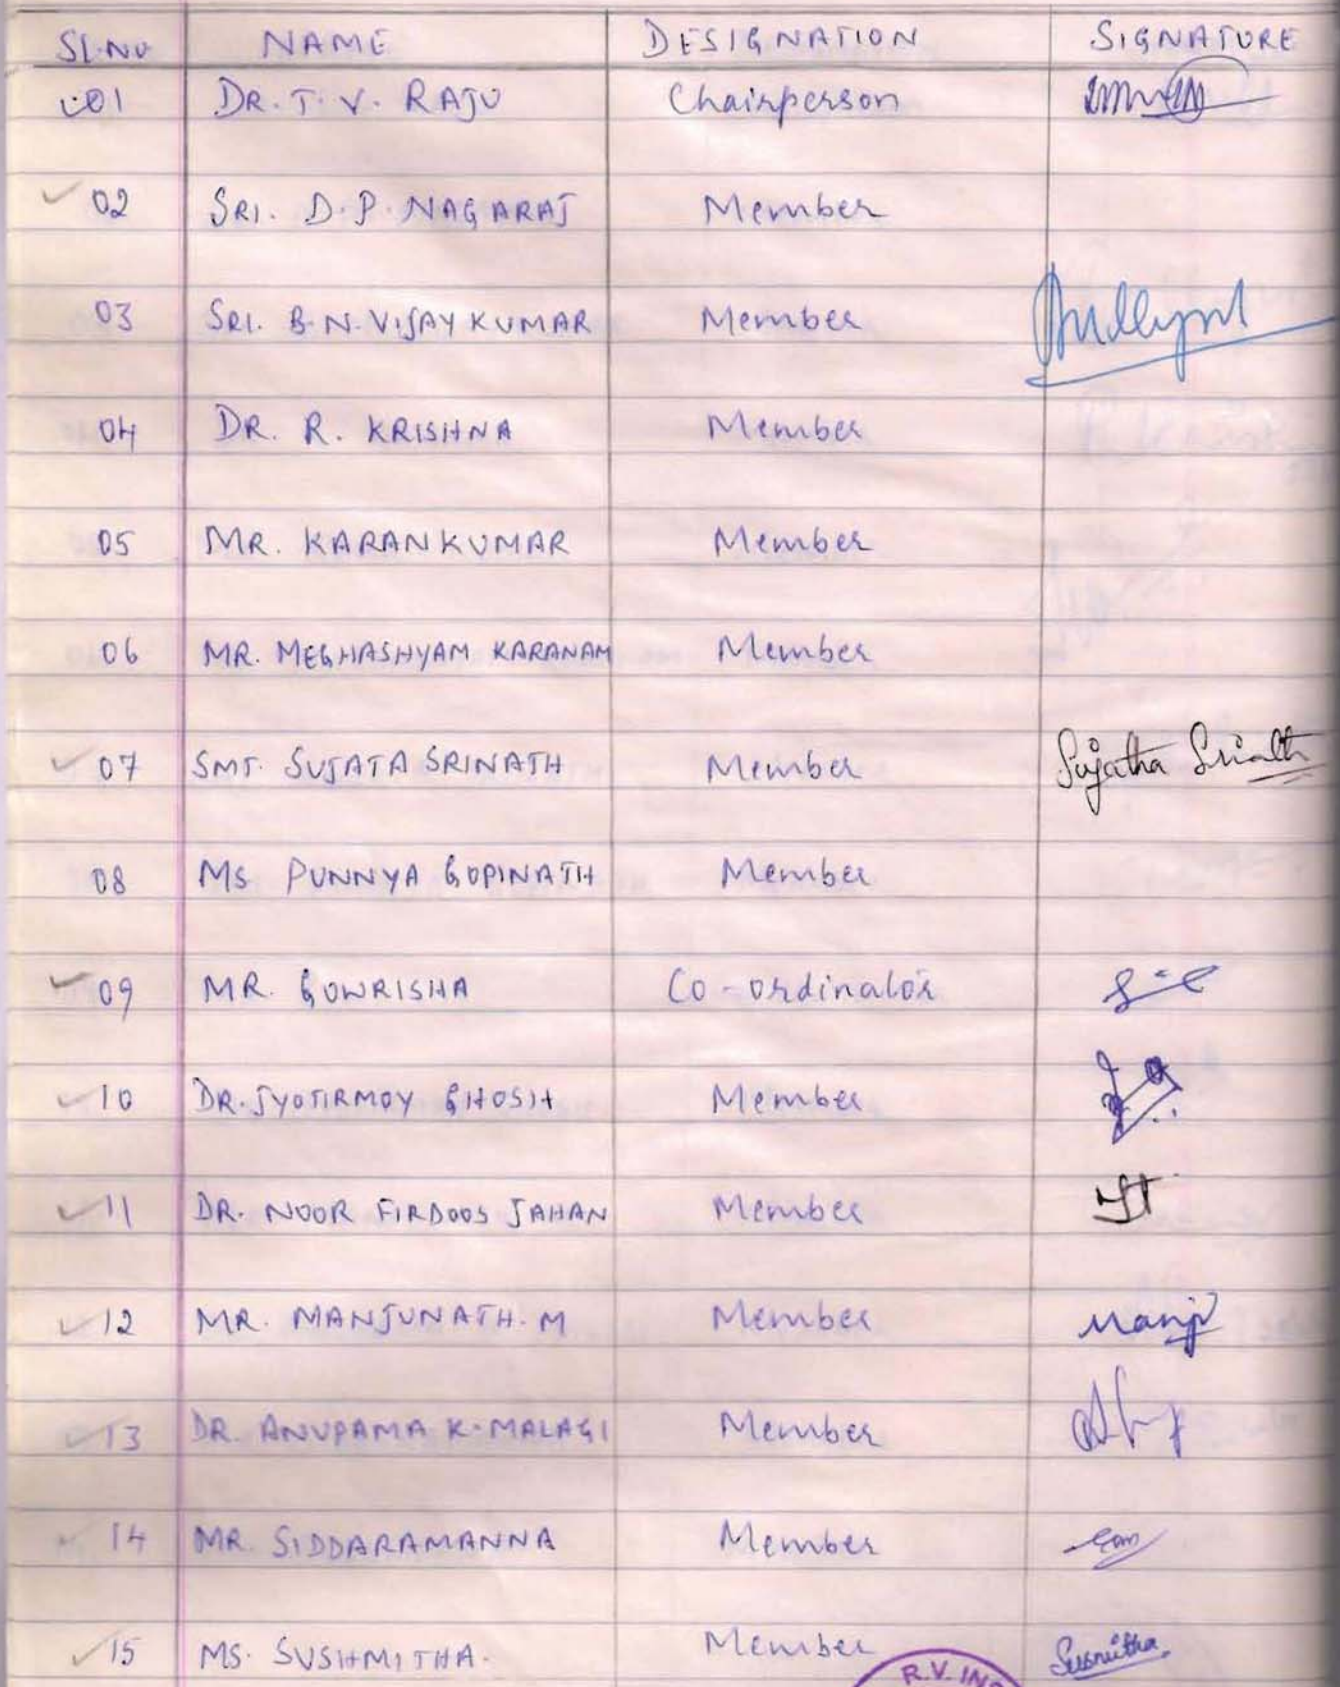 SL.NO NAME DESIGNATION SIGNATURE
01 DR. T. V. RAJU Chairperson
02 SRI. D. P. NAGARAJ Member
03 SRI. B. N. VIJAY KUMAR Member
04 DR. R. KRISHNA Member
05 MR. KARAN KUMAR Member
06 MR. MEGHASHYAM KARANAM Member
07 SMT. SUJATA SRINATH Member Sujatha Srinath
08 MS PUNNYA GOPINATH Member
09 MR. GOWRISHA Co-ordinator
10 DR. JYOTIRMOY GHOSH Member
11 DR. NOOR FIRDOOS JAHAN Member
12 MR. MANJUNATH. M Member Manju
13 DR. ANUPAMA K. MALAGI Member
14 MR. SIDDARAMANNA Member
15 MS. SUSHMITHA. Member Susmitha
R.V. INS